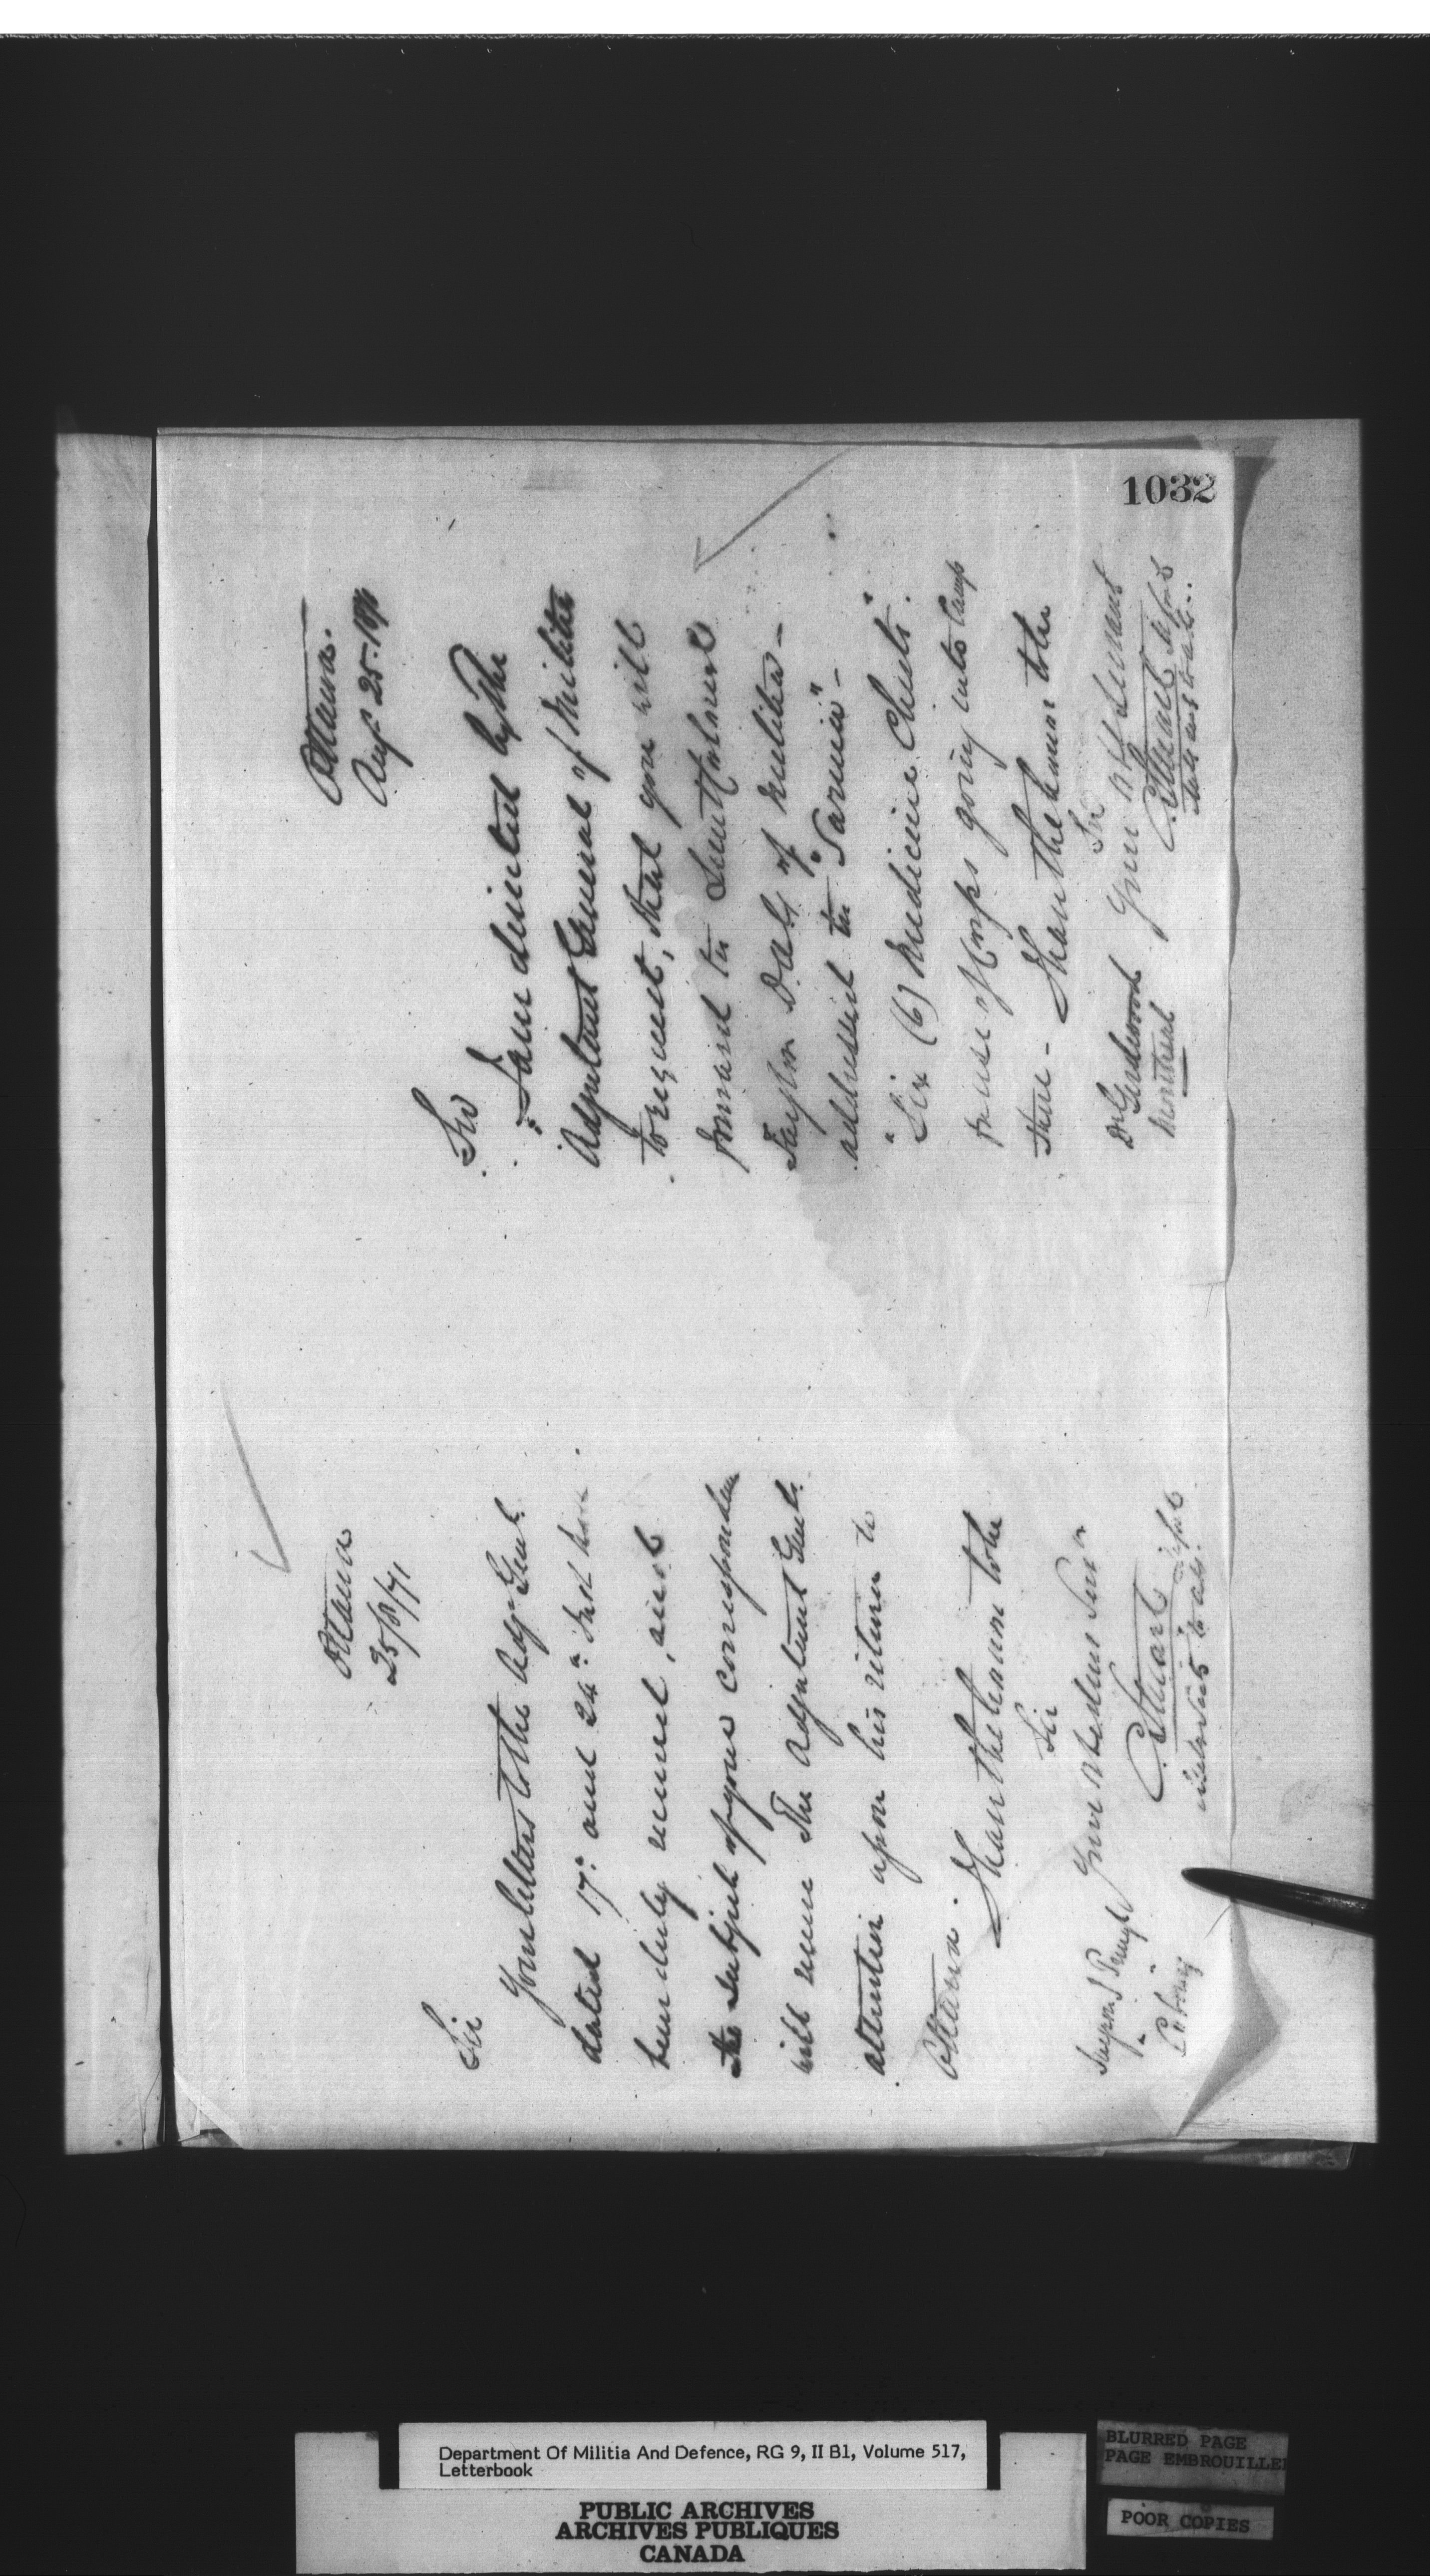 1032
Ottawa
25/8/71
Sir
Your letters to the Adjt Genl.
dated 17th and 24th Inst have
been duly received, and
the subject of your correspondence
will receive the Adjutant Genl.
attention upon his return to
Ottawa.
I have the honour to be
Sir
Your obedient Serv
C. Stuart
Cobourg
Ottawa.
Aug 25. 1871
Sir
I am directed by the
Adjutant General of Militia
to request, that you will
forward to Lieutt Colonel
Taylor D.A.G. of Militia -
addressed to "Sarnia" -
"Six (6) Medicine Chests".
for use of Corps going into Camp
there - I have the honour to be
Sir
Your obt Servant
C. Stuart
Dr
Montreal
Department Of Militia And Defence, RG 9, II B1, Volume 517,
Letterbook
PUBLIC ARCHIVES
ARCHIVES PUBLIQUES
CANADA
BLURRED PAGE
PAGE EMBROUILLEE
POOR COPIES